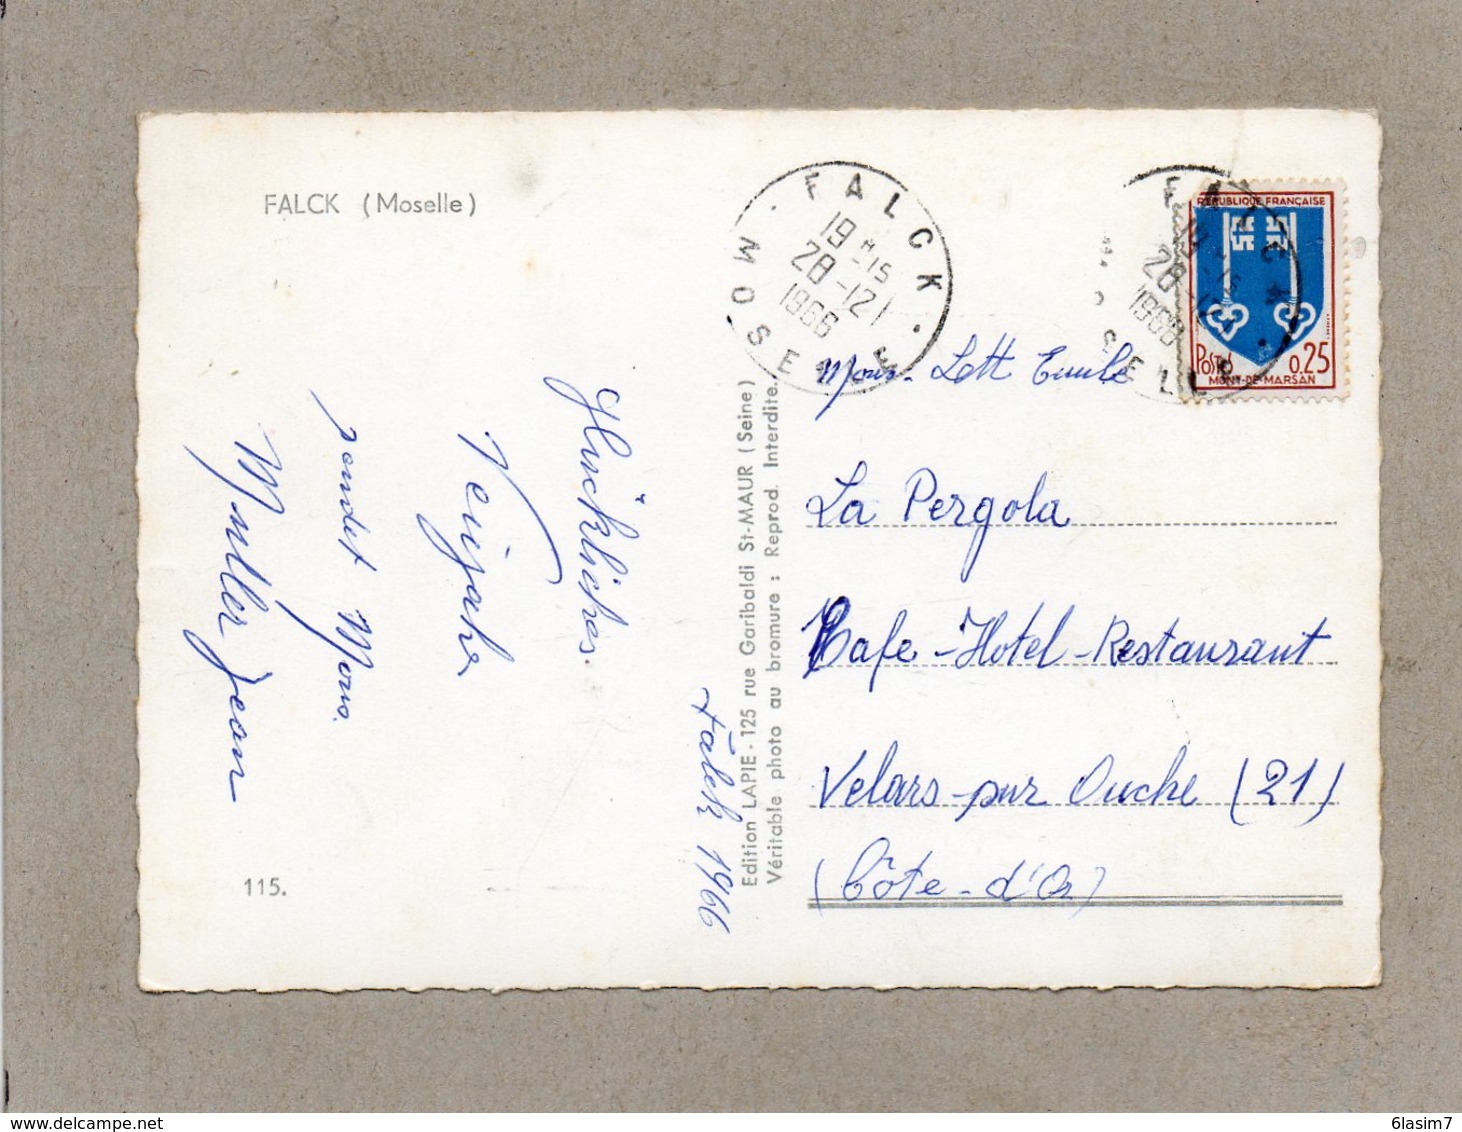 FALCK (Moselle)
Falck 1966
Glückliches.
Neijahr
sendet Mons.
Muller Jean
115.
Edition LAPIE - 125 rue Garibaldi St-MAUR (Seine)
Véritable photo au bromure : Reprod. Interdite.
FALCK
19 H 15
28-12
1966
MOSELLE
FALCK
19 H 15
28-12
1966
MOSELLE
RÉPUBLIQUE FRANÇAISE
POSTES 0,25
MONT-DE-MARSAN
Mons. Lott Emile
La Pergola
Cafe-Hotel-Restaurant
Velars-sur Ouche (21)
(Côte-d'Or)
6lasim7